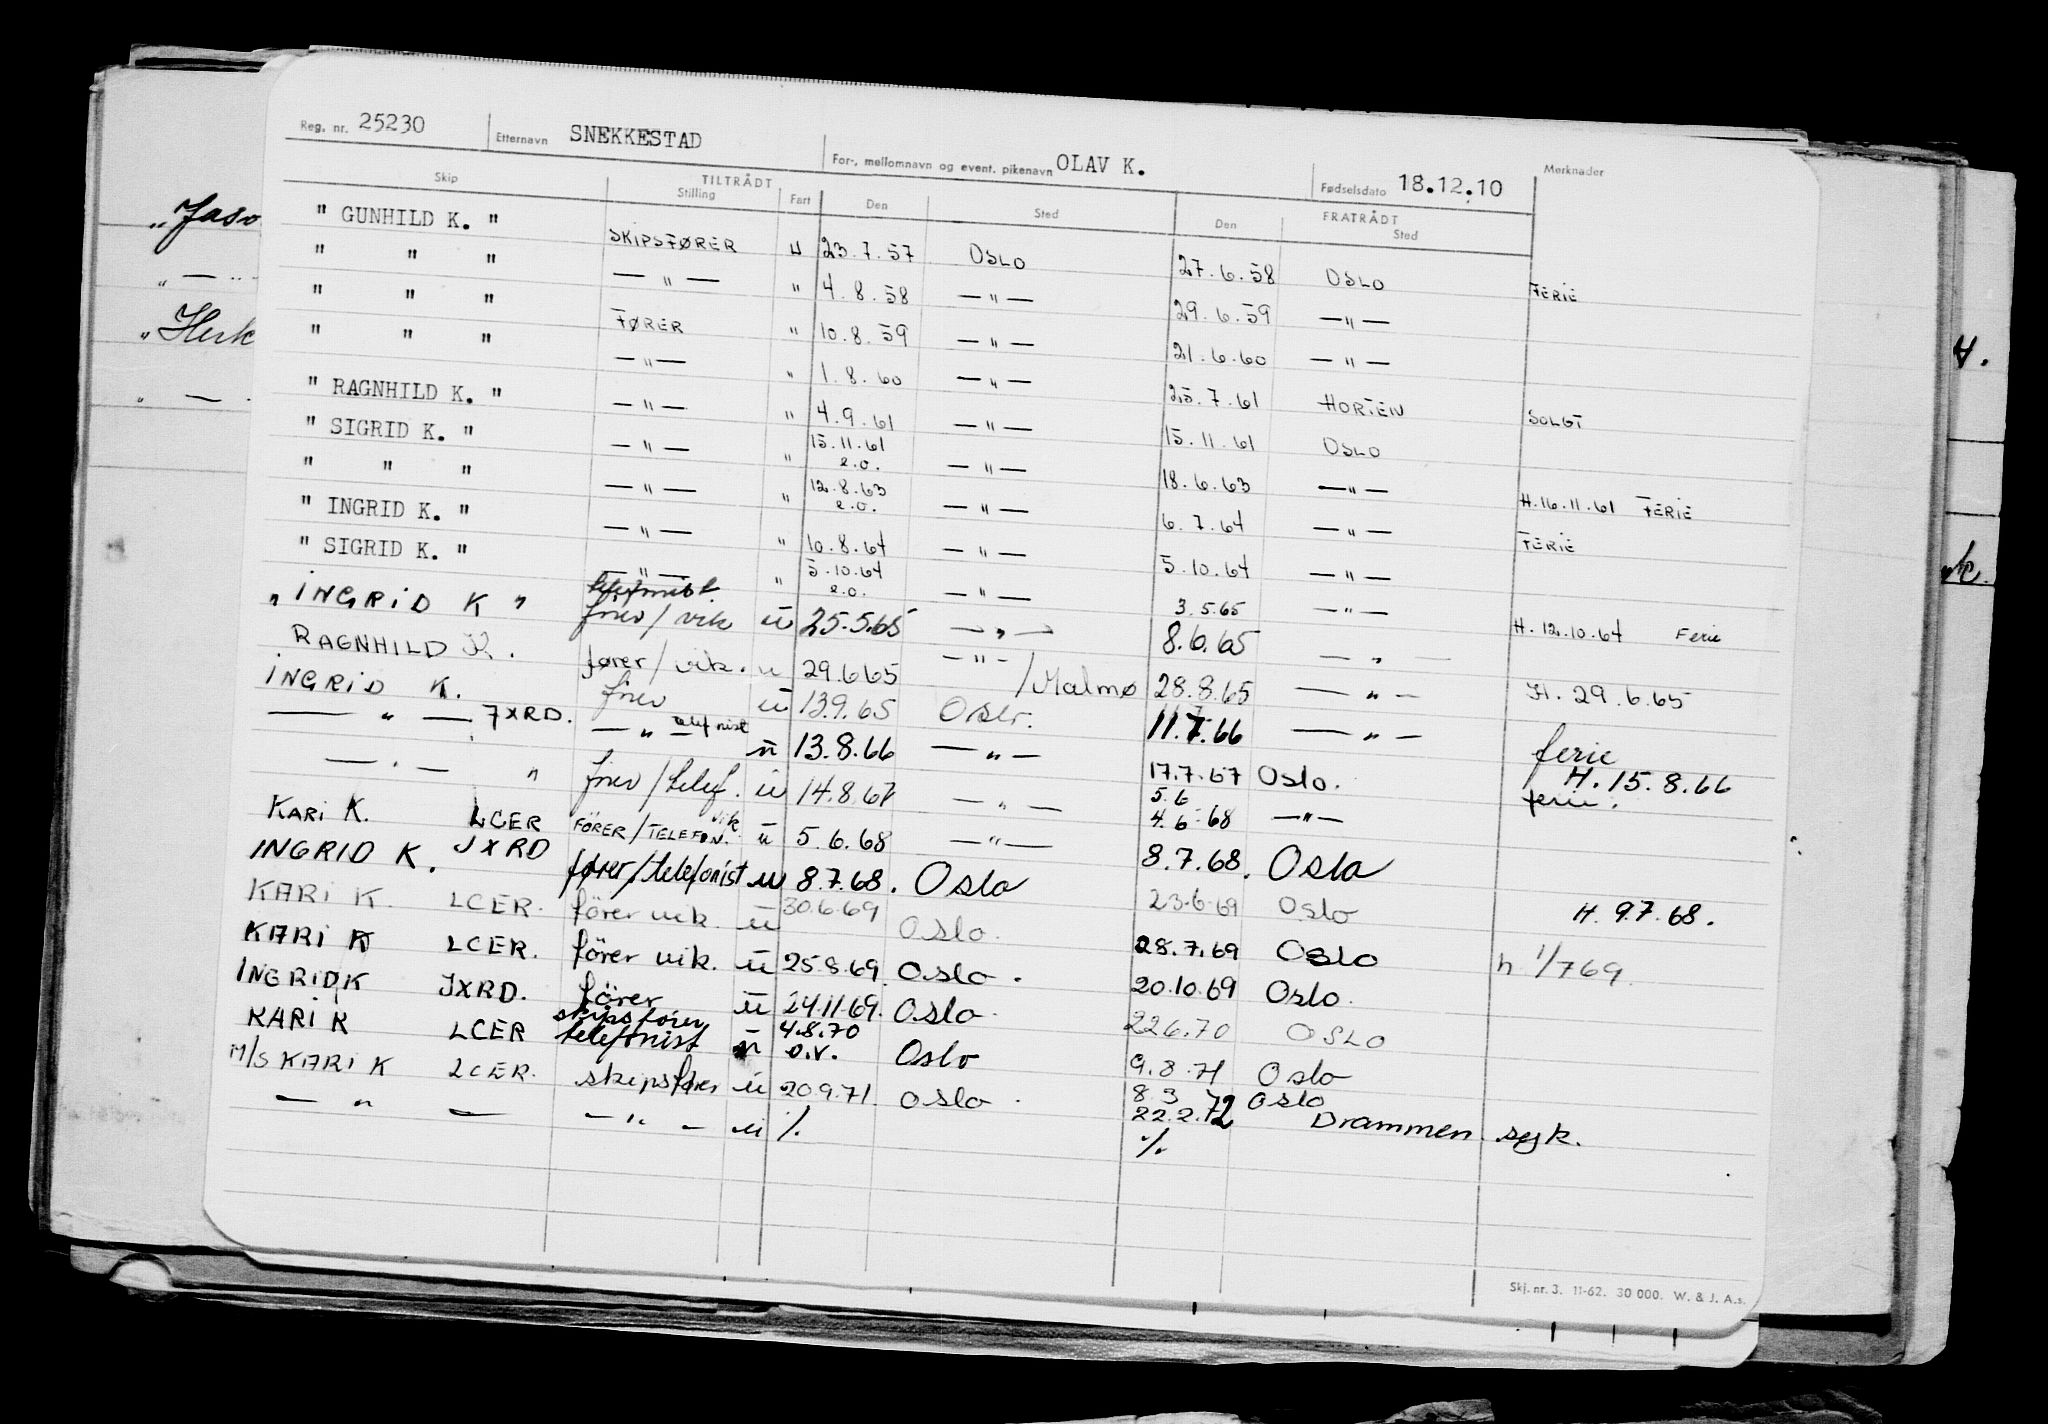 Reg. nr. 25230 Etternavn SNEKKESTAD For-, mellomnavn og event. pikenavn OLAV K. Fødselsdato 18.12.10 Merknader
Skip TILTRÅDT Stilling Fart Den Sted FRATRÅDT Den Sted
" GUNHILD K. " SKIPSFØRER U 23.7.57 OSLO 27.6.58 OSLO FERIE
" " " — " — " 4.8.58 — " — 29.6.59 — " —
" " " FØRER " 10.8.59 — " — 21.6.60 — " —
" " " — " — " 1.8.60 — " — 25.7.61 HORTEN SOLGT
" RAGNHILD K. " — " — " 4.9.61 — " — 15.11.61 OSLO
" SIGRID K. " — " — " 15.11.61 e.o. — " — 18.6.63 — " — H.16.11.61 FERIE
" " " — " — " 12.8.63 e.o. — " — 6.7.64 — " — FERIE
" INGRID K. " — " — " 10.8.64 — " — 5.10.64 — " —
" SIGRID K. " — " — " 5.10.64 e.o. — " — 3.5.65 — " — H.12.10.64 Ferie
" INGRID K " telefonist / vik ü 25.5.65 — " — 8.6.65 — " —
RAGNHILD K. fører / vik. u 29.6.65 — " — / Malmø 28.8.65 — " — H. 29.6.65
INGRID K. ü 13.9.65 Oslo. 11.7.66 — " — ferie
— " — JXRD. — " — telefonist ü 13.8.66 — " — 17.7.67 Oslo. H. 15.8.66 ferie.
— " — " / telef. ü 14.8.67 — " — 5.6 4.6.68 — " —
KARI K. LCER FÖRER/TELEFON. vik ü 5.6.68 — " — 8.7.68. Oslo
INGRID K. JXRD fører/telefonist u 8.7.68. Oslo 23.6.69 Oslo H. 9.7.68.
KARI K. LCER. förer vik. ü 30.6.69 Oslo. 28.7.69 Oslo h 1/7 69
KARI K LCER. förer vik. ü 25.8.69 Oslo. 20.10.69 Oslo.
INGRID K JXRD. förer ü 24.11.69. Oslo. 22.6.70 OSLO
KARI K LCER skipsfører telefonist ü 4.8.70 o.v. Oslo 9.8.71 Oslo
M/S KARI K LCER. skipsfører ü 20.9.71. Oslo. 8.3 72 Oslo 22.2.72 Drammen syk.
— " — — " — ü %. %.
Skj. nr. 3. 11-62. 30 000. W. & J. A.s.